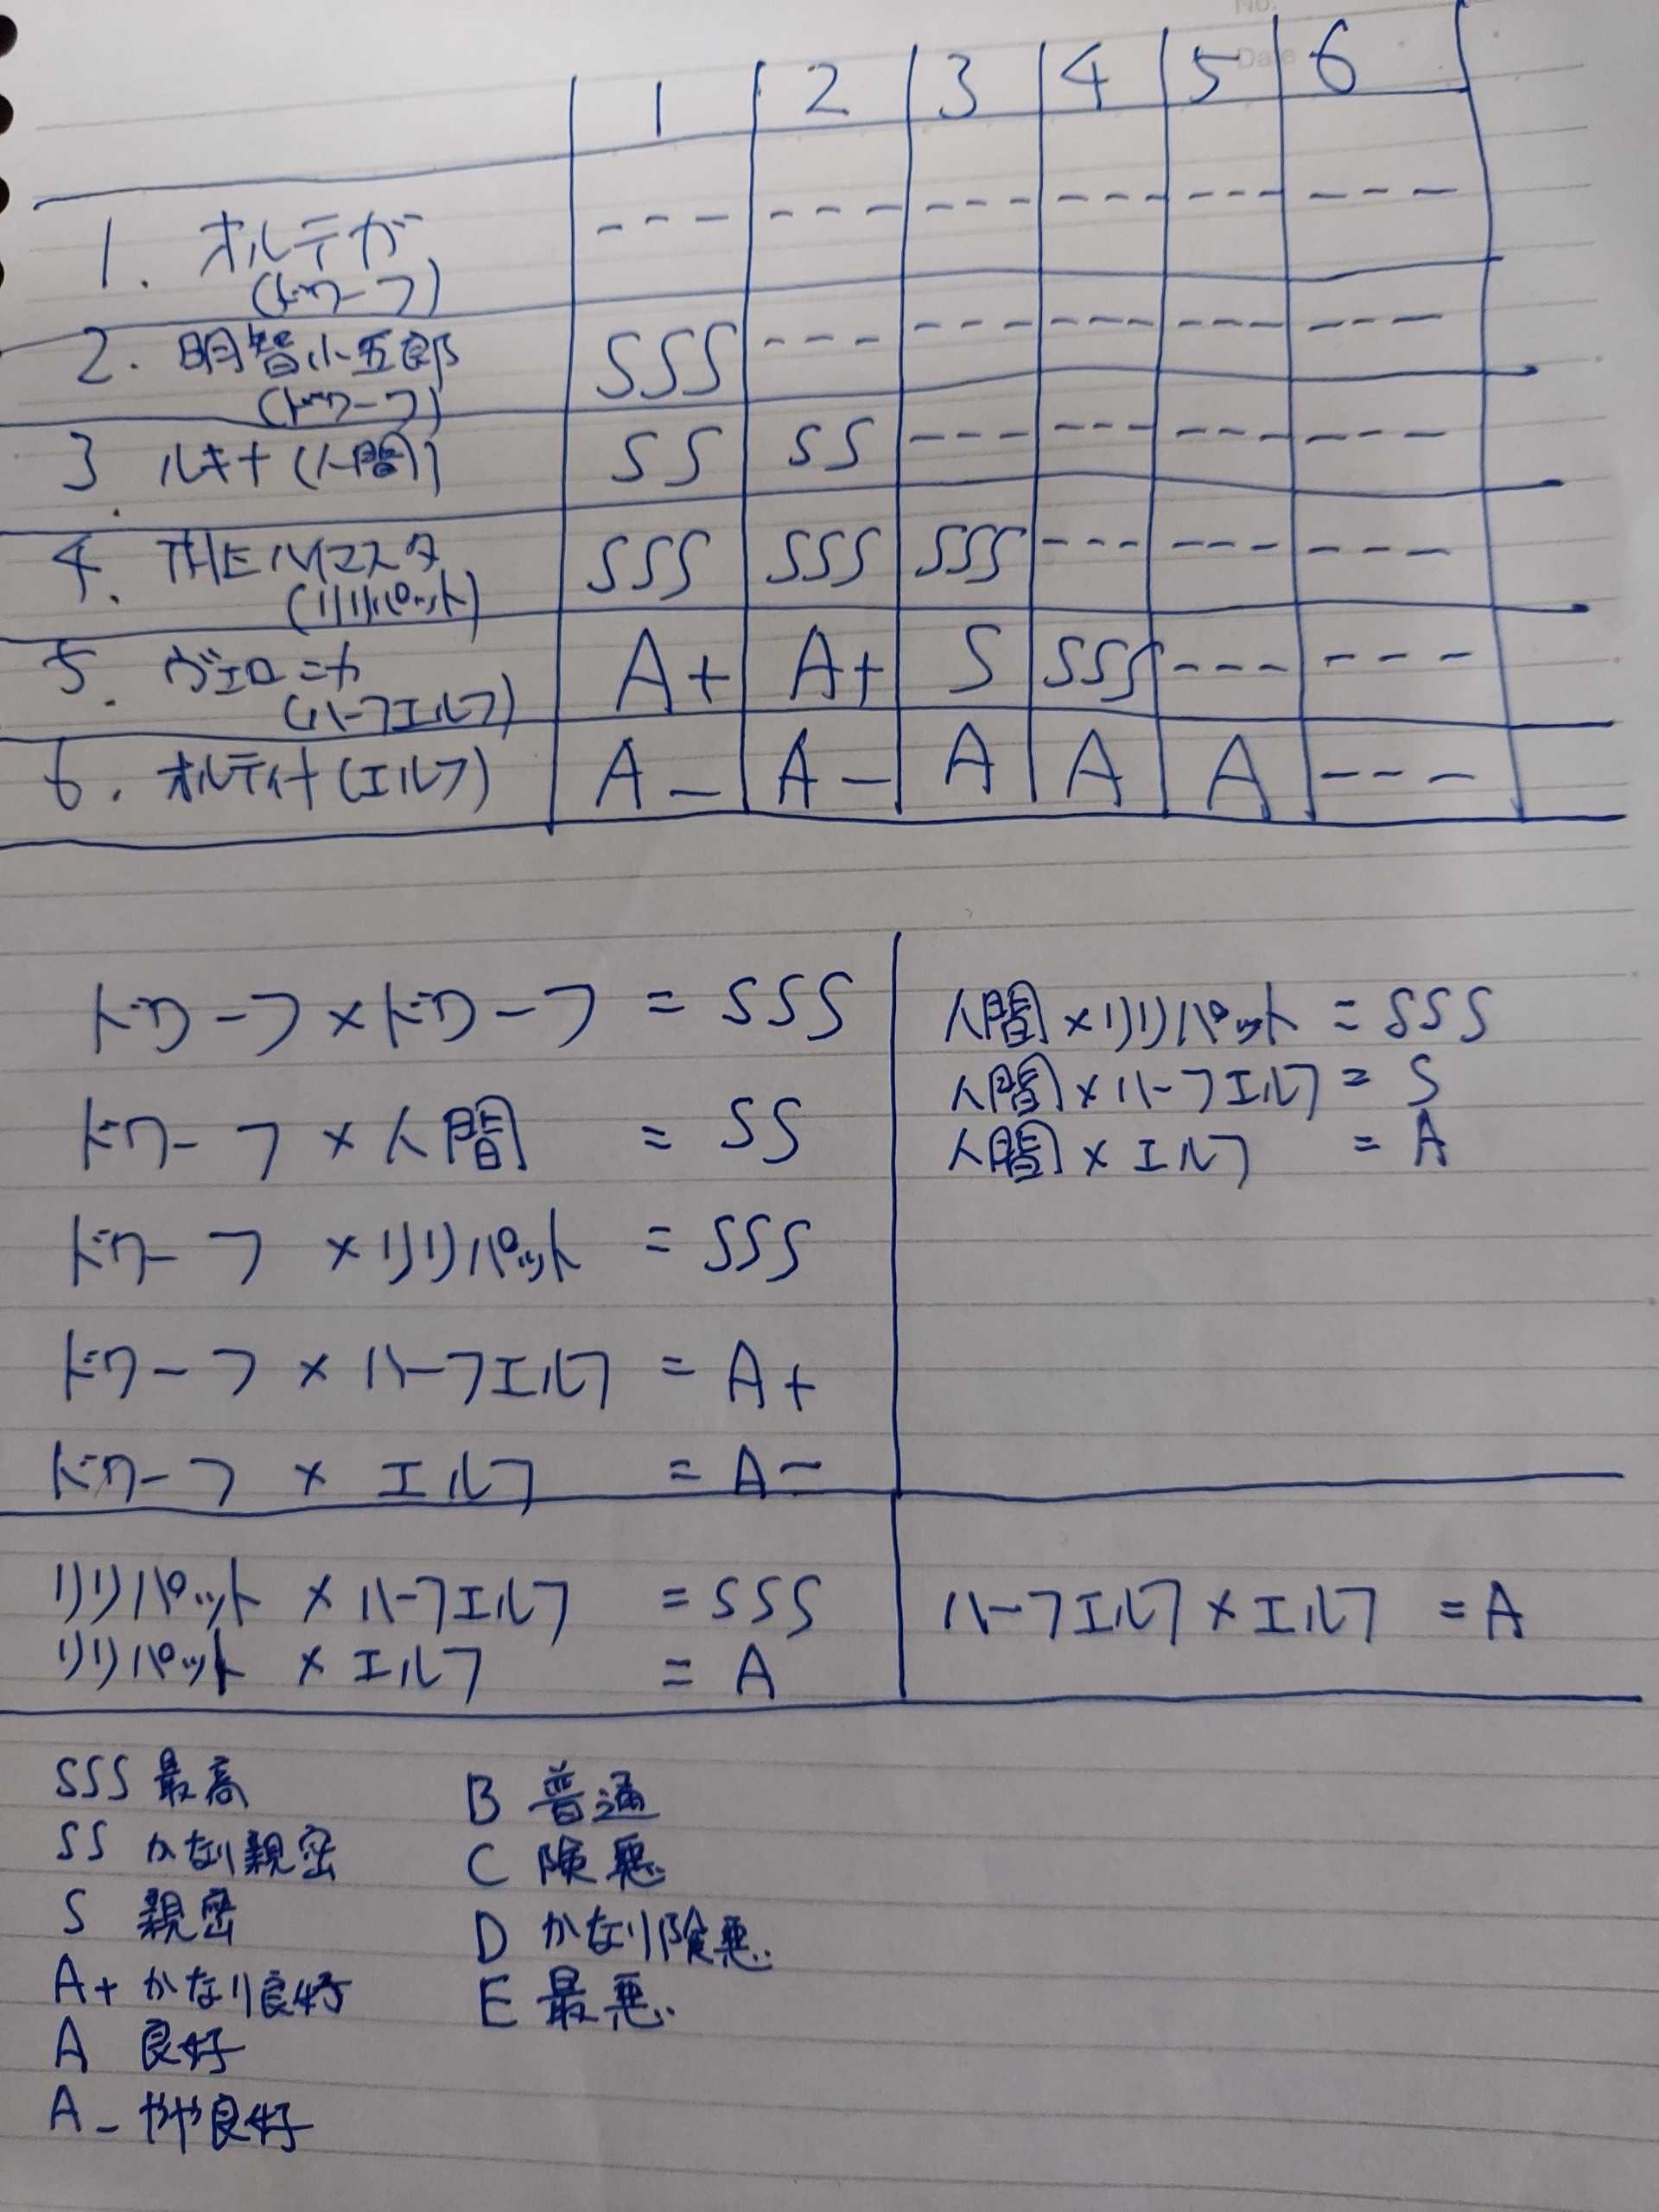 No.
Date
1 2 3 4 5 6
1. オルテガ --- --- --- --- --- ---
(ドワーフ)
2. 明智小五郎 SSS --- --- --- --- ---
(ドワーフ)
3. ルキナ(人間) SS SS --- --- --- ---
4. THE ハマスタ SSS SSS SSS --- --- ---
(リリパット)
5. ヴェロニカ A+ A+ S SSS --- ---
(ハーフエルフ)
6. オルティナ(エルフ) A- A- A A A ---
ドワーフ×ドワーフ = SSS
ドワーフ×人間 = SS
ドワーフ×リリパット = SSS
ドワーフ×ハーフエルフ = A+
ドワーフ×エルフ = A-
人間×リリパット = SSS
人間×ハーフエルフ = S
人間×エルフ = A
リリパット×ハーフエルフ = SSS
リリパット×エルフ = A
ハーフエルフ×エルフ = A
SSS 最高
SS かなり親密
S 親密
A+ かなり良好
A 良好
A- やや良好
B 普通
C 険悪
D かなり険悪
E 最悪